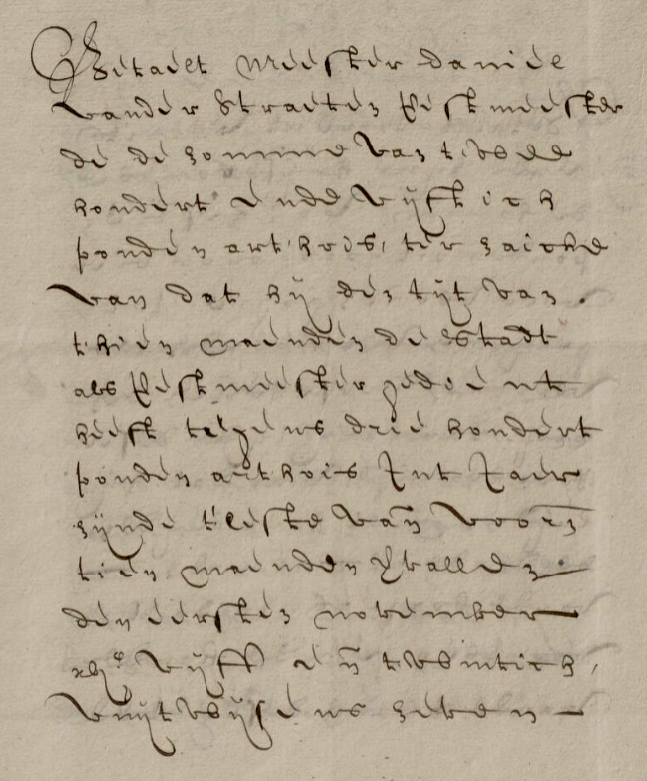 Betaelt meester Daniel
vander Straeten Pestmeester
de de somme van twee
hondert ende vijftich
ponden arthois, ter saicke
van dat hij den tijt van
thien maenden de stadt
als Pestmeester gedient
heeft tegens drie hondert
ponden arthois Int Jaer
zijnde t'leste van voorsz
tien maenden vallen
den eersten november
xvjc vijff en twintich,
vuijtwijsens zeken